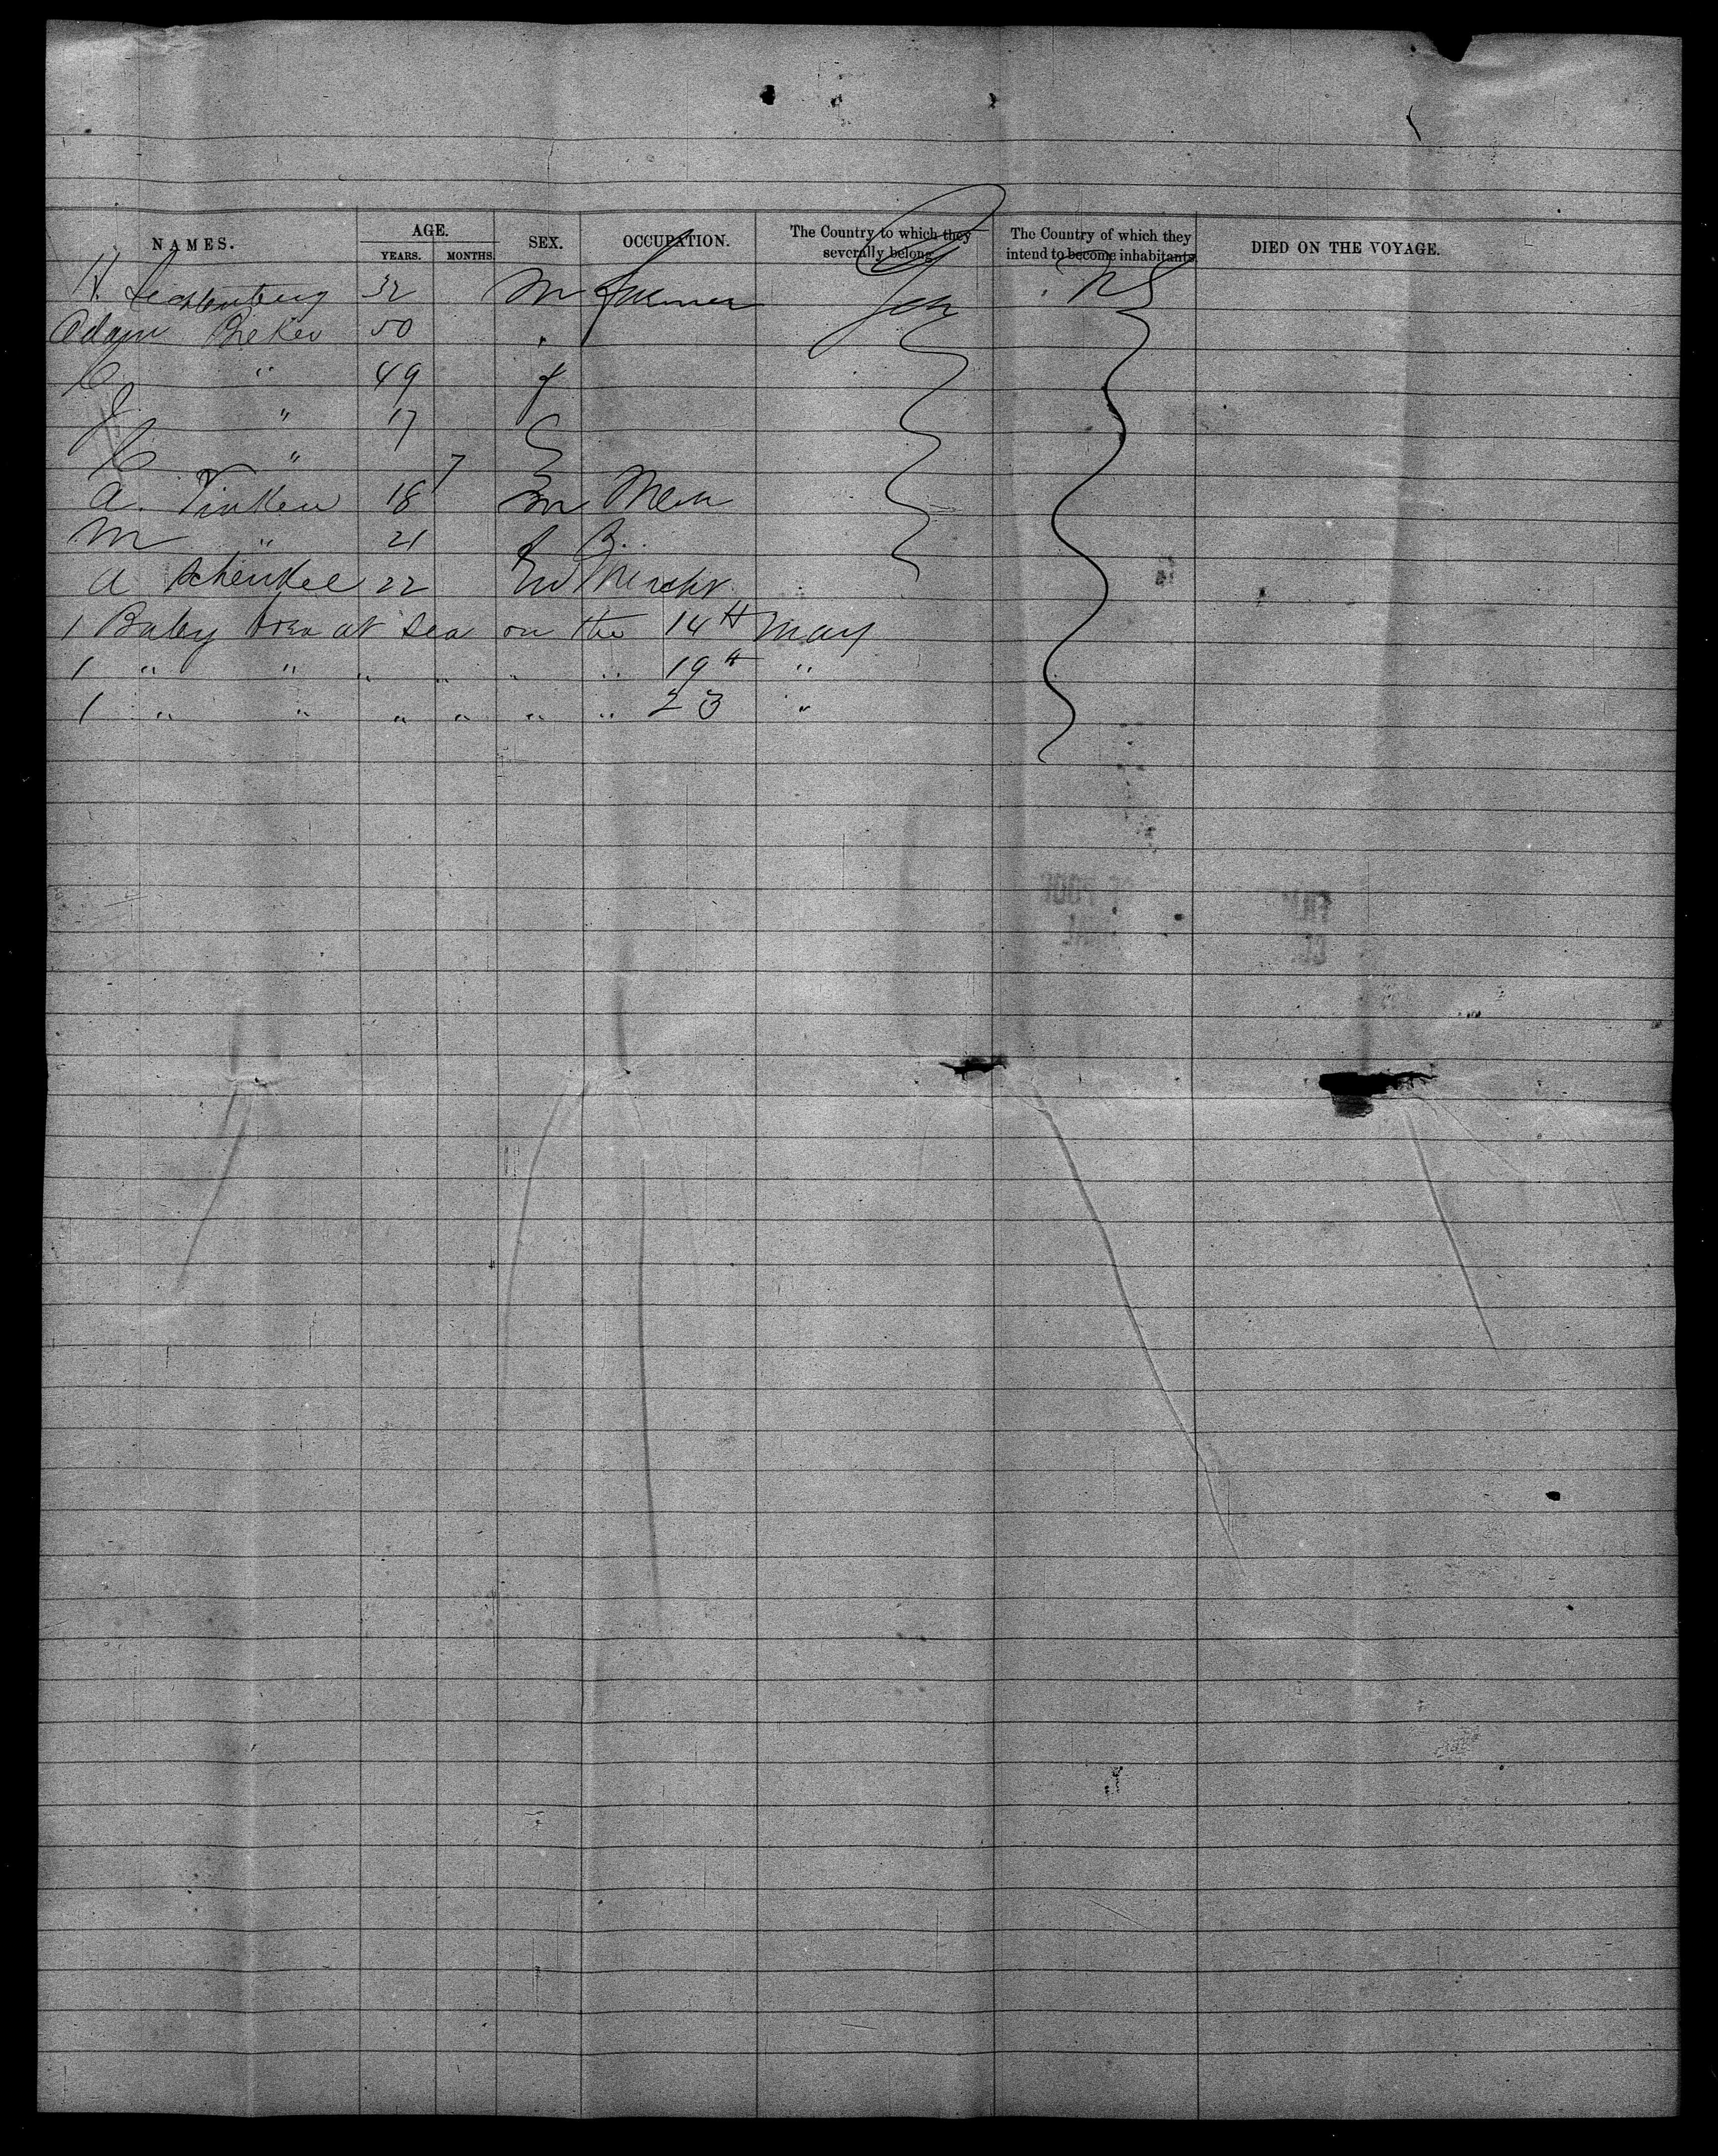 NAMES. AGE. SEX. OCCUPATION. The Country to which they severally belong. The Country of which they intend to become inhabitants. DIED ON THE VOYAGE.
YEARS. MONTHS.
H. Lichtenberg 32 m Farmer Ger US
Adam 50 "
C " 49 f
J " 17
C " 7
A. Tinken 18 m
M " 21 f
A Schenkel 22 m
1 Baby born at sea on the 14th May
1 " " " " " " 19th "
1 " " " " " " 23 "